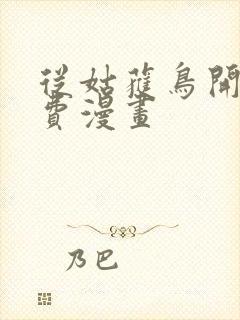 從姑獲鳥開
費漫畫
乃巴